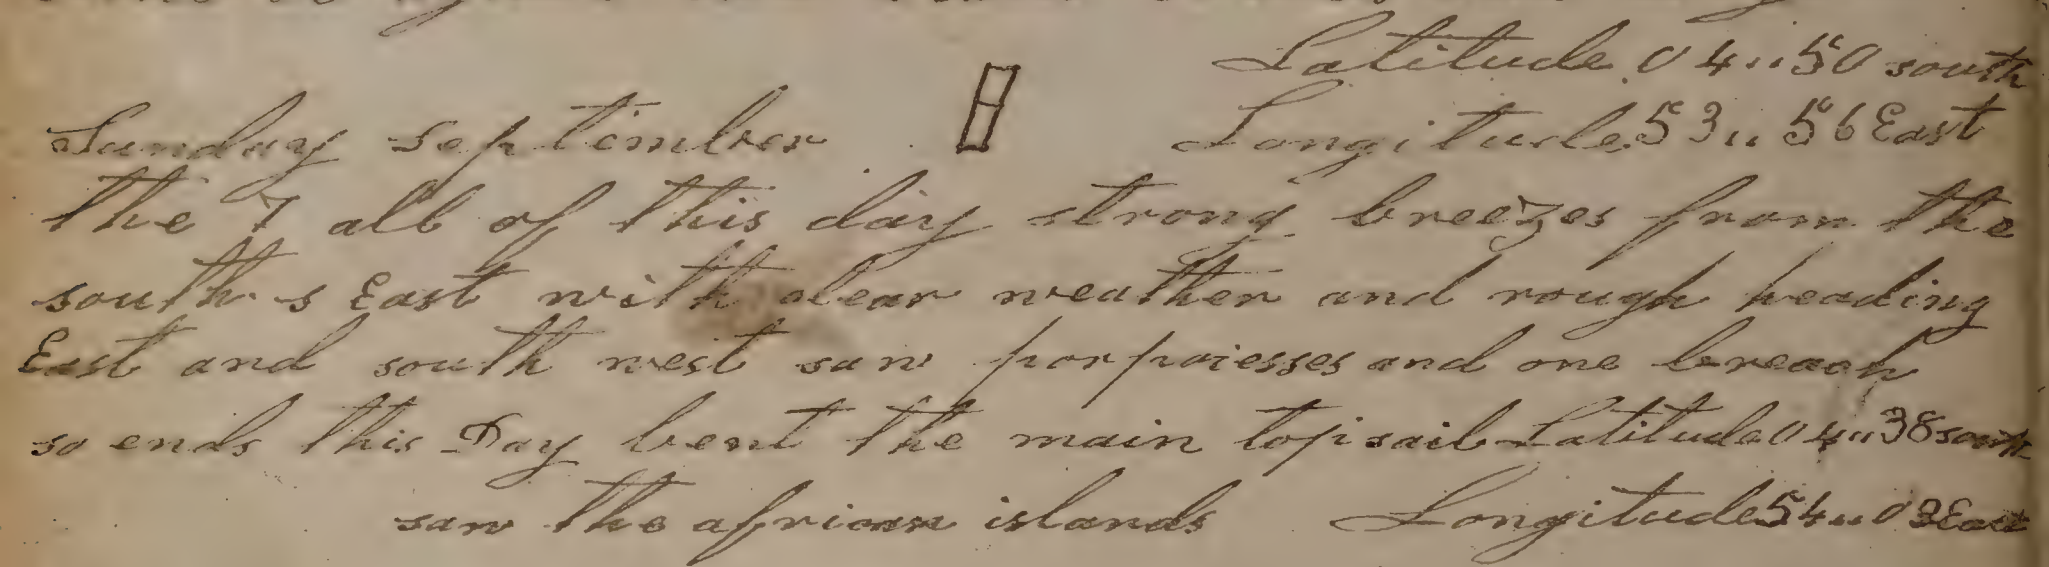 Latitude 04,,50 south
Sunday september Longitude 53,,56 East
the 7 all of this day strong breezes from the
south s East with clear weather and rough heading
East and south west saw porpoiesses and one breach
so ends this Day bent the main topsail Latitude 04,,38 south
saw the african islands Longitude 54,,03 East